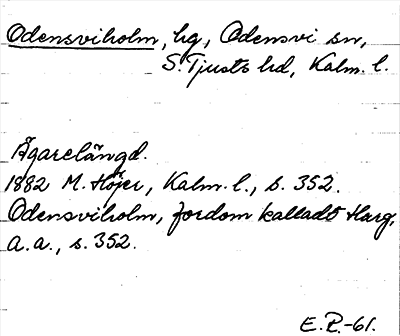 Odensviholm, hg, Odensvi sn,
S. Tjusts hd, Kalm. l.
Ägarelängd.
1882 M. Höjer, Kalm. l., s. 352.
Odensviholm, fordom kalladt Harg,
a. a., s. 352.
E.P.-61.